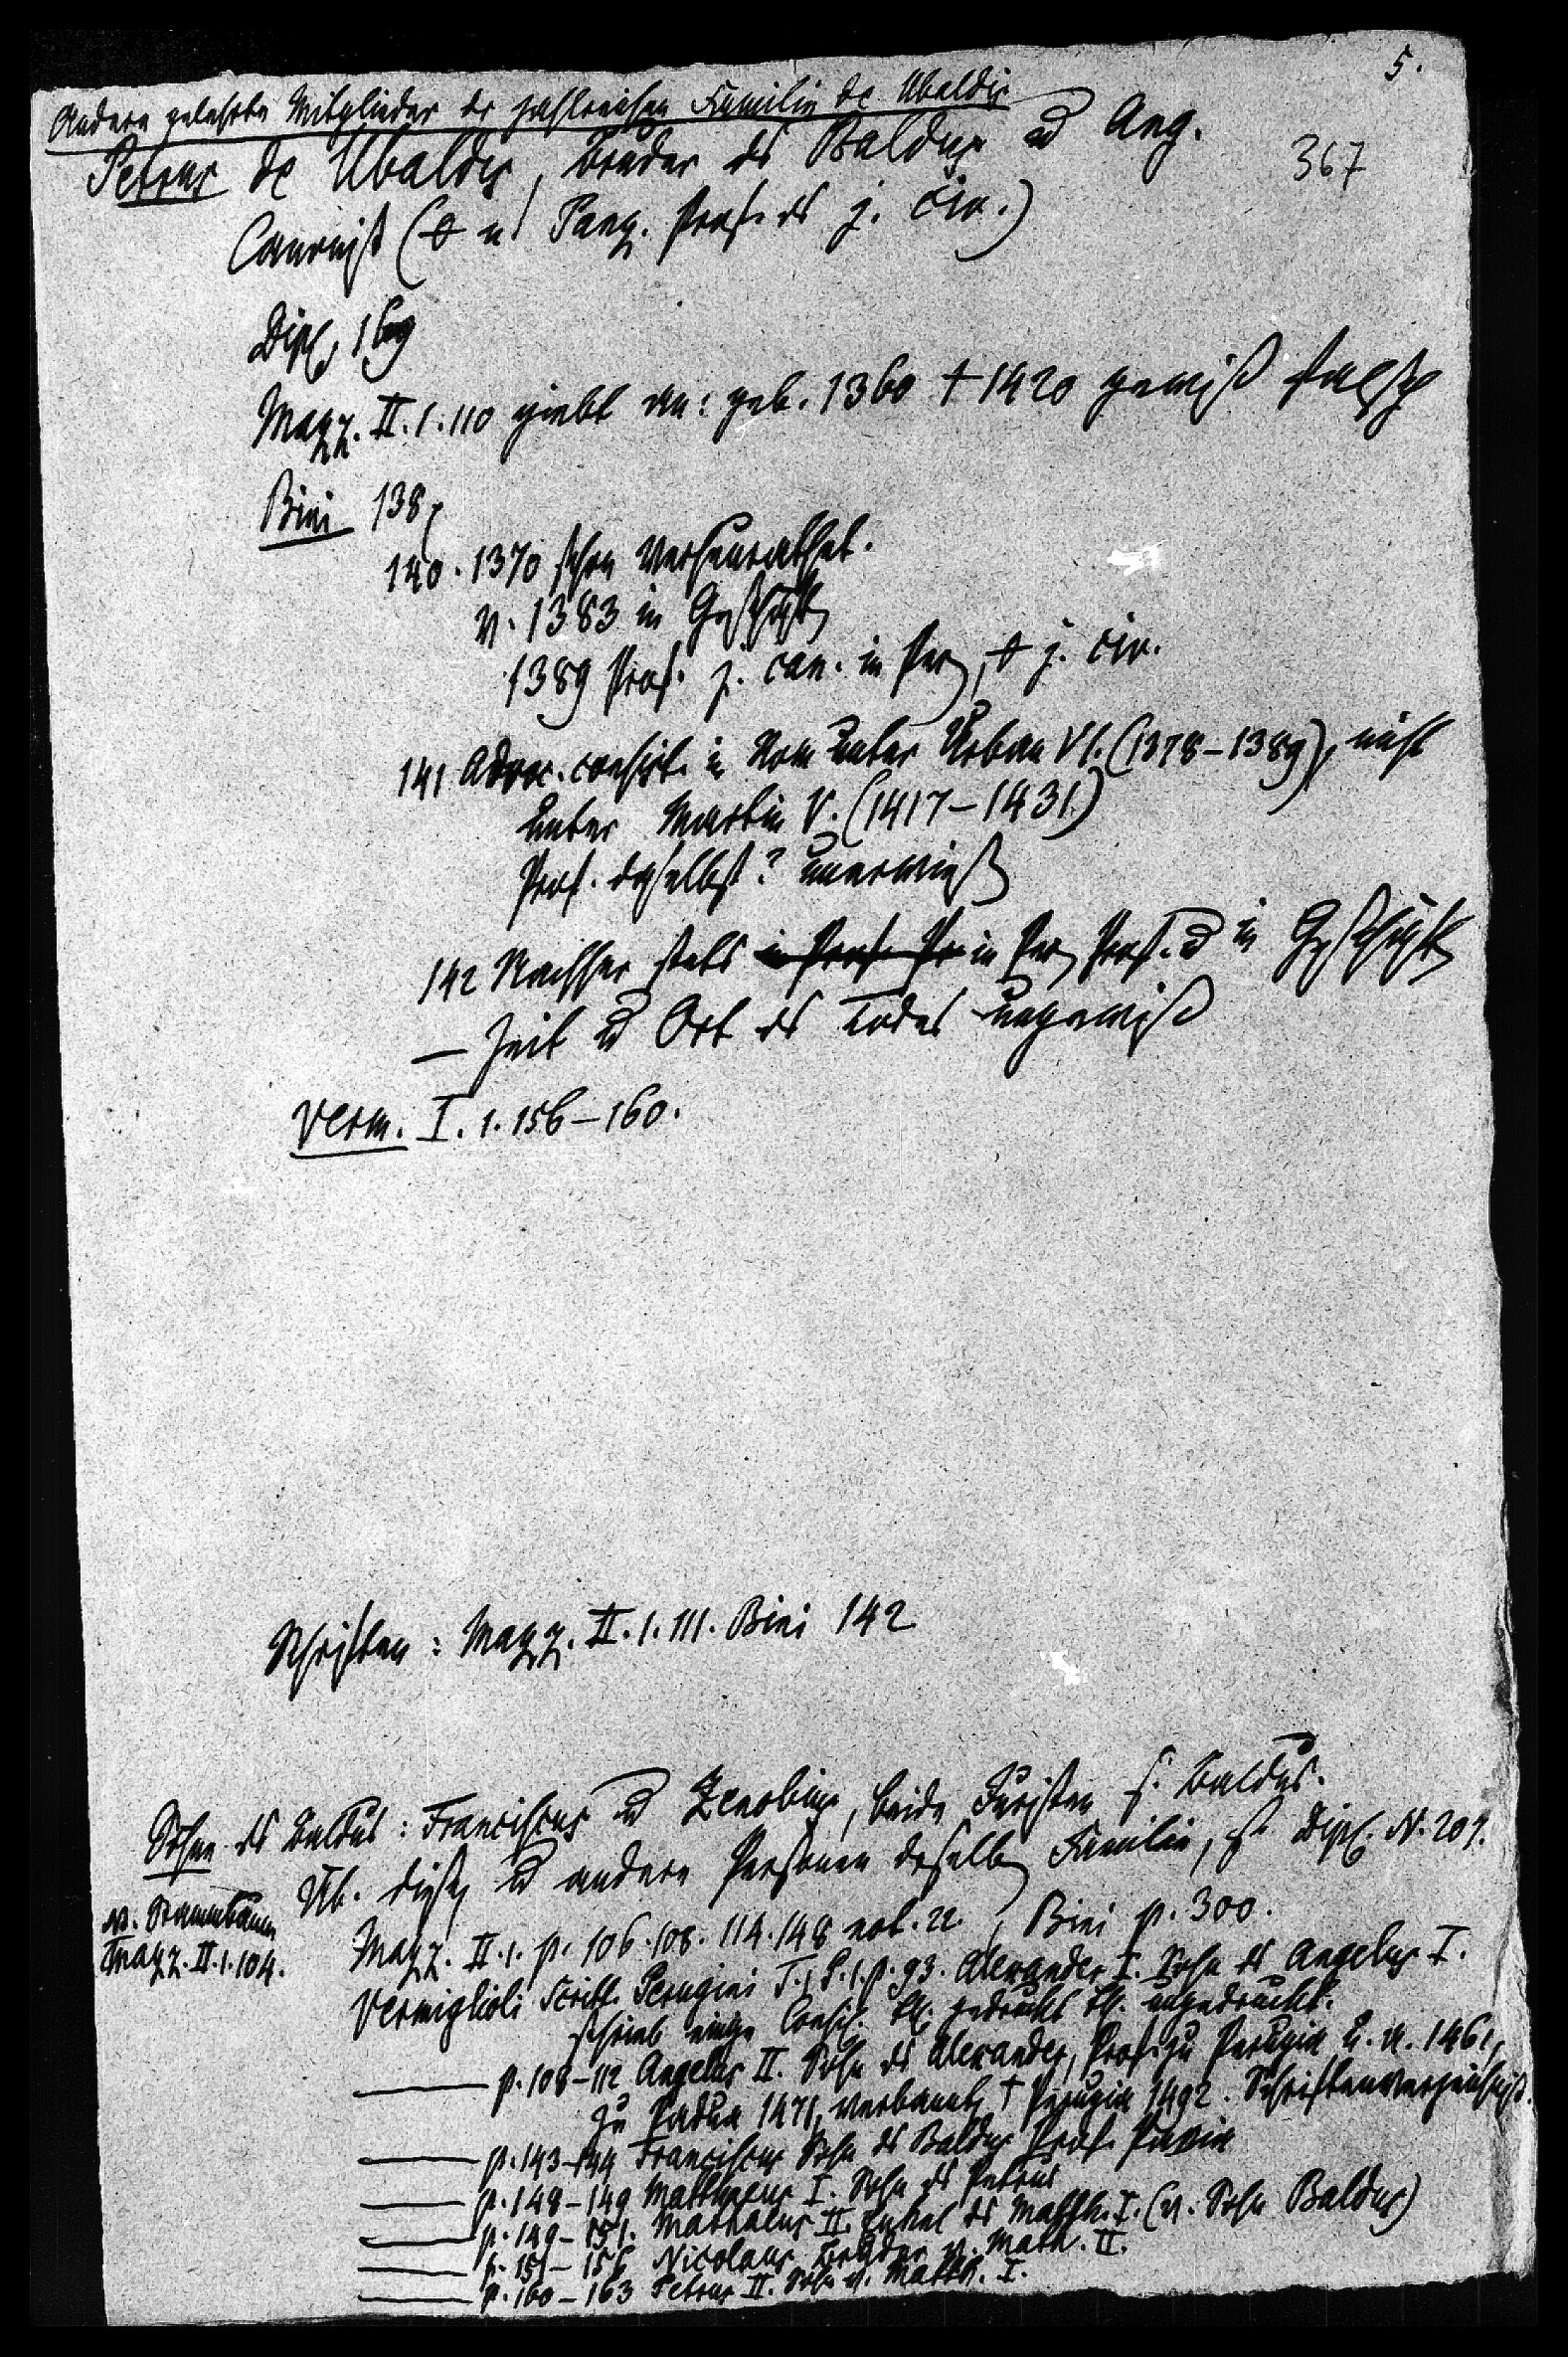 5.
Andere gelehrte Mitglieder der zahlreichen Familie de Ubaldis
367
Petrus de Ubaldis, Bruder des Baldus u Ang.
Canonist ( u Prof. des j. civ.)
Dipl. 169
Mazz. II. 1. 110 giebt an: geb. 1360 † 1420 gewiß falsch
Bini 138
140. 1370 schon verheurathet.
v. 1383 in Geschäften
1389 Prof. j. can. in Per, j. civ.
141 Advoc. consist. in Rom unter Urban VI. (1378–1389), nicht
unter Martin V. (1417–1431)
Prof. daselbst? unerwiesen
142 Nachher stets in Per Prof. u in Geschäften
— Zeit u Ort des Todes ungewiß
Verm. I. 1. 156–160.
Schriften: Mazz. II. 1. 111. Bini 142
Söhne des Baldus: Franciscus u Zenobius, beide Juristen s. Baldus.
Üb. diese u andere Personen derselben Familie, s. Dipl. N. 209.
v. Stammbaum
Mazz. II. 1. 104.
Mazz. II. 1. p. 106. 108. 114. 148 not. 22., Bini p. 300.
Vermiglioli Scritt. Perugini T. 1 P. 1. p. 93. Alexander I. Sohn des Angelus I.
schrieb einige Consil. th. gedruckt th. ungedruckt.
—— p. 108–112 Angelus II. Sohn des Alexander, Prof. zu Perugia u. a. 1461,
zu Padua 1471, verbannt, † Perugia 1492. Schriftenverzeichniß.
—— p. 143–144 Franciscus Sohn des Baldus Prof. Pavia
—— p. 148–149 Matthaeus I. Sohn des Petrus
—— p. 149–151. Mathaeus II. Enkel des Matth. I. (v. Sohn Baldus)
—— p. 151–156 Nicolaus Bruder v. Math. II.
—— p. 160–163 Petrus II. Sohn v. Matth. I.